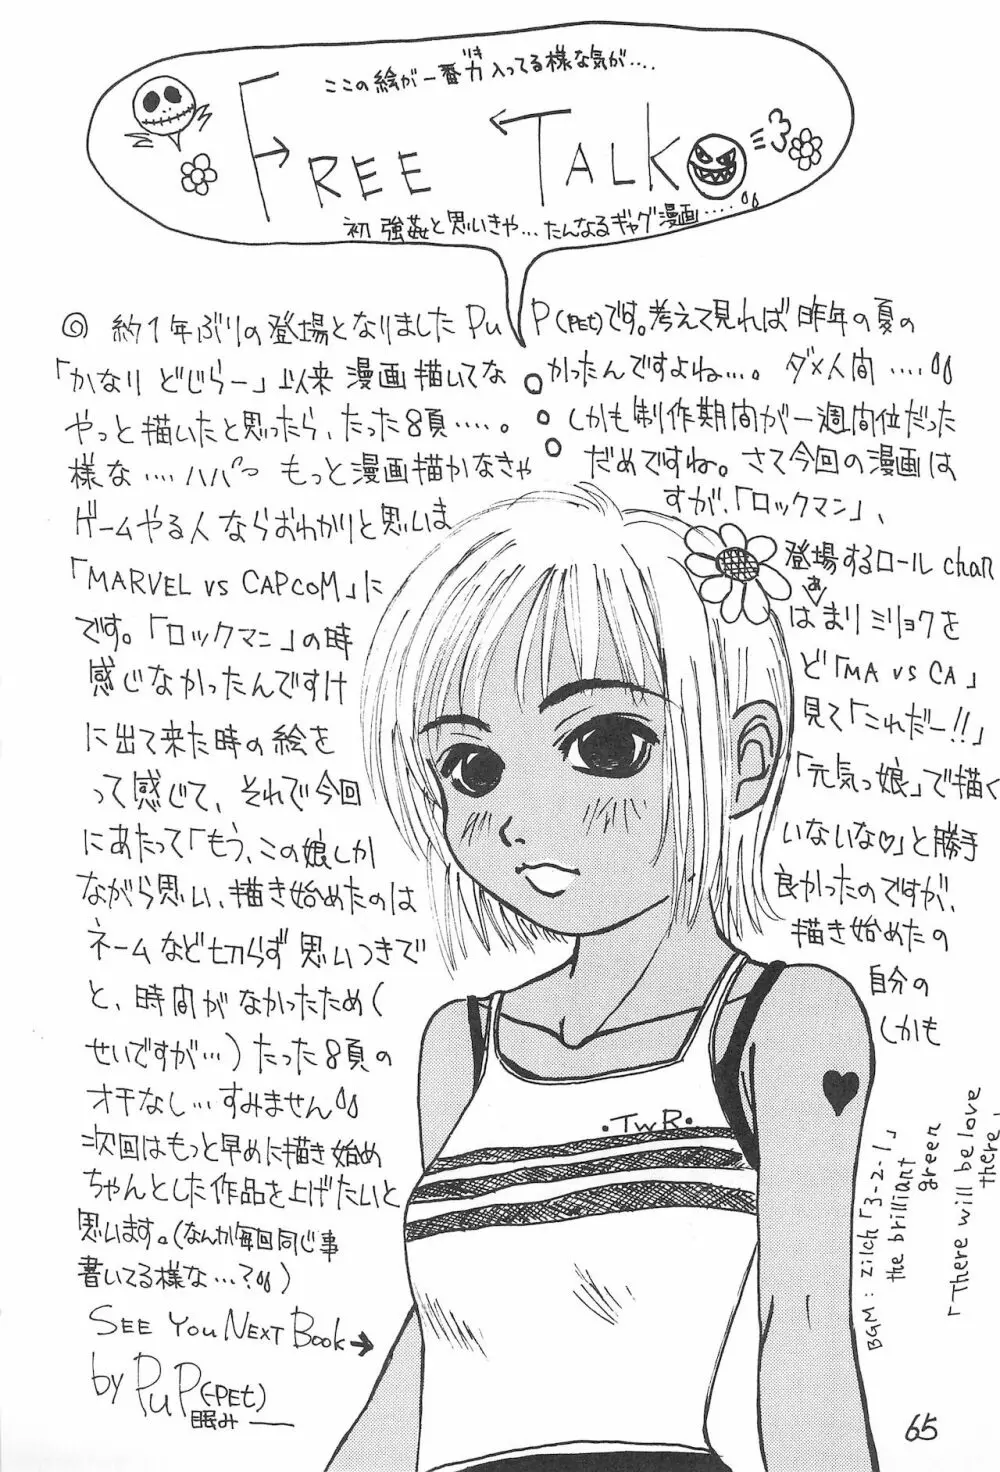 ここの絵が一番力入ってる様な気が‥‥
FREE TALK
初 強姦と思いきや…たんなるギャグ漫画‥‥
◎ 約1年ぶりの登場となりました PuP(PEt)です。考えて見れば昨年の夏の
「かなり どじらー」以来 漫画描いてな かったんですよね…。ダメ人間‥‥
やっと描いたと思ったら、たった8頁‥‥。しかも制作期間が一週間位だった
様な‥‥ハハハっ もっと漫画描かなきゃ だめですね。さて今回の漫画は
ゲームやる人ならおわかりと思いま すが、「ロックマン」、
「MARVEL vs CAPCOM」に 登場するロール chan
です。「ロックマン」の時 はあまりミリョクを
感じなかったんですけ ど「MA vs CA」
に出て来た時の絵を 見て「これだー!!」
って感じて、それで今回 「元気っ娘」で描く
にあたって「もう、この娘しか いないな♡」と勝手
ながら思い、描き始めたのは 良かったのですが、
ネームなど切らず思いつきで 描き始めたの
と、時間がなかったため( 自分の
せいですが…)たった8頁の しかも
オチなし…すみません
次回はもっと早めに描き始め
ちゃんとした作品を上げたいと
思います。(なんか毎回同じ事
書いてる様な…?)
SEE YOU NEXT BOOK→
by PuP(-PEt)
眠み—
・TWR・
BGM: zilch「3-2-1」
the brilliant
green
「There will be love
there」
65